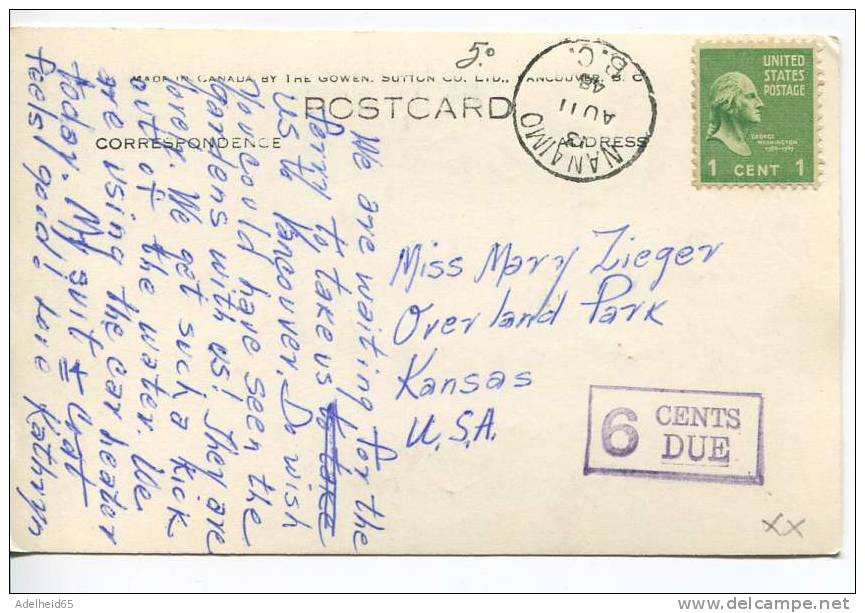 5.0
MADE IN CANADA BY THE GOWEN, SUTTON CO. LTD., VANCOUVER, B.C.
POSTCARD
CORRESPONDENCE
ADDRESS
NANAIMO
13
AU 11
48
B.C.
UNITED
STATES
POSTAGE
GEORGE
WASHINGTON
1789-1797
1 CENT 1
We are waiting for the
ferry to take us to take
us to Vancouver. Do wish
you could have seen the
gardens with us! They are
lovely. We get such a kick
out of the water. We
are using the car heater
today. My suit + hat
feels good! Love Kathryn
Miss Mary Zieger
Overland Park
Kansas
U.S.A.
6 CENTS
DUE
xx
Adelheid65
http://www.delcampe.net